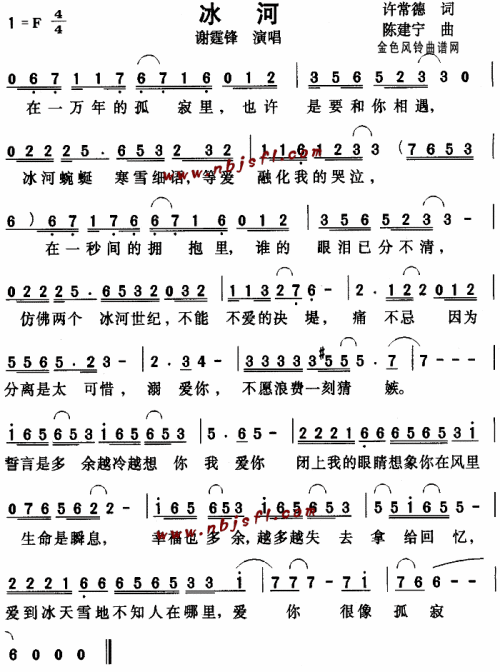 冰 河
许常德 词
1=F 4/4
谢霆锋 演唱
陈建宁 曲
金色风铃曲谱网
0 6 7 1 1 7 6 7 1 6 0 1 2 | 3 5 6 5 2 3 3 0
在一万年的孤 寂里,也许 是要和你相遇,
0 2 2 2 5. 6 5 3 2 3 2 | 1 1 6 1 2 3 3 (7 6 5 3
www.nbjsfl.com
冰河蜿蜒 寒雪细语,等爱 融化我的哭泣,
6 ) 6 7 1 7 6 6 7 1 6 0 1 2 | 3 5 6 5 2 3 3 - |
在一秒间的拥 抱里,谁的 眼泪已分不清,
0 2 2 2 5. 6 5 3 2 0 3 2 | 1 1 3 2 7 6 - | 2 . 1 2 2 0 1 2
仿佛两个 冰河世纪,不能 不爱的决 堤, 痛 不忌 因为
5 5 6 5 . 2 3 - | 2 . 3 4 - | 3 3 3 3 3 #5 5 5 . 7 | 7 - - -
分离是太 可惜, 溺 爱你, 不愿浪费一刻猜 嫉。
i 6 5 6 5 3 i 6 5 6 5 3 | 5 . 6 5 - | 2 2 2 1 6 6 6 5 6 5 3 i |
誓言是多 余越冷越想 你 我 爱你 闭上我的眼睛想象你在风里
0 7 6 5 6 2 2 - | i 6 5 6 5 3 i 6 5 6 5 3 | 5 5 i 6 5 5 - |
www.nbjsfl.com
生命是瞬息, 幸福也多余,越多越失 去 拿 给回 忆,
2 2 2 1 6 6 6 5 6 5 3 3 i | 7 7 7 - 7 i | 7 6 6 - -
爱到冰天雪地不知人在哪里,爱 你 很像 孤寂
6 0 0 0 ‖